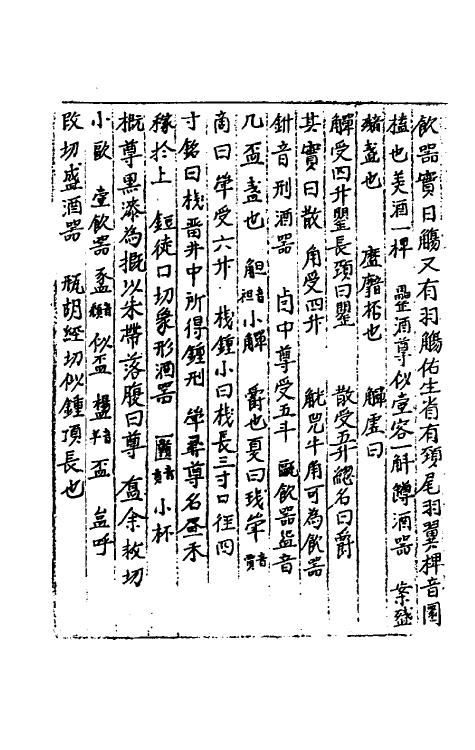 飲器實曰觴又有羽觴佑生省有頚尾羽翼椑音圍
榼也美酒一椑 罍酒尊似壺容一斛 罇酒器 案盛
盞也 也 觶虚曰
觶受四升罌長頚曰罌 散受五升總名曰爵
其實曰散 角受四升 觥兕牛角可為飲器
鈃音刑酒器 卣中尊受五斗 甌飲器盌音
几盃盞也 觛音袒小觶 爵也夏曰琖斚音賈
商曰斚受六升 棧鍾小曰棧長三寸口徑四
寸銘曰棧晋井中所得鍾刑 斚彛尊名昼禾
稼扵上 鋀徒口切象形酒器 匱音貢小杯
概尊黒漆為概以朱帶落腹曰尊 盇余救切
小歐 壺飲器 盃 盃 盆呼
改切盛酒器 瓶胡經切似鍾項長也